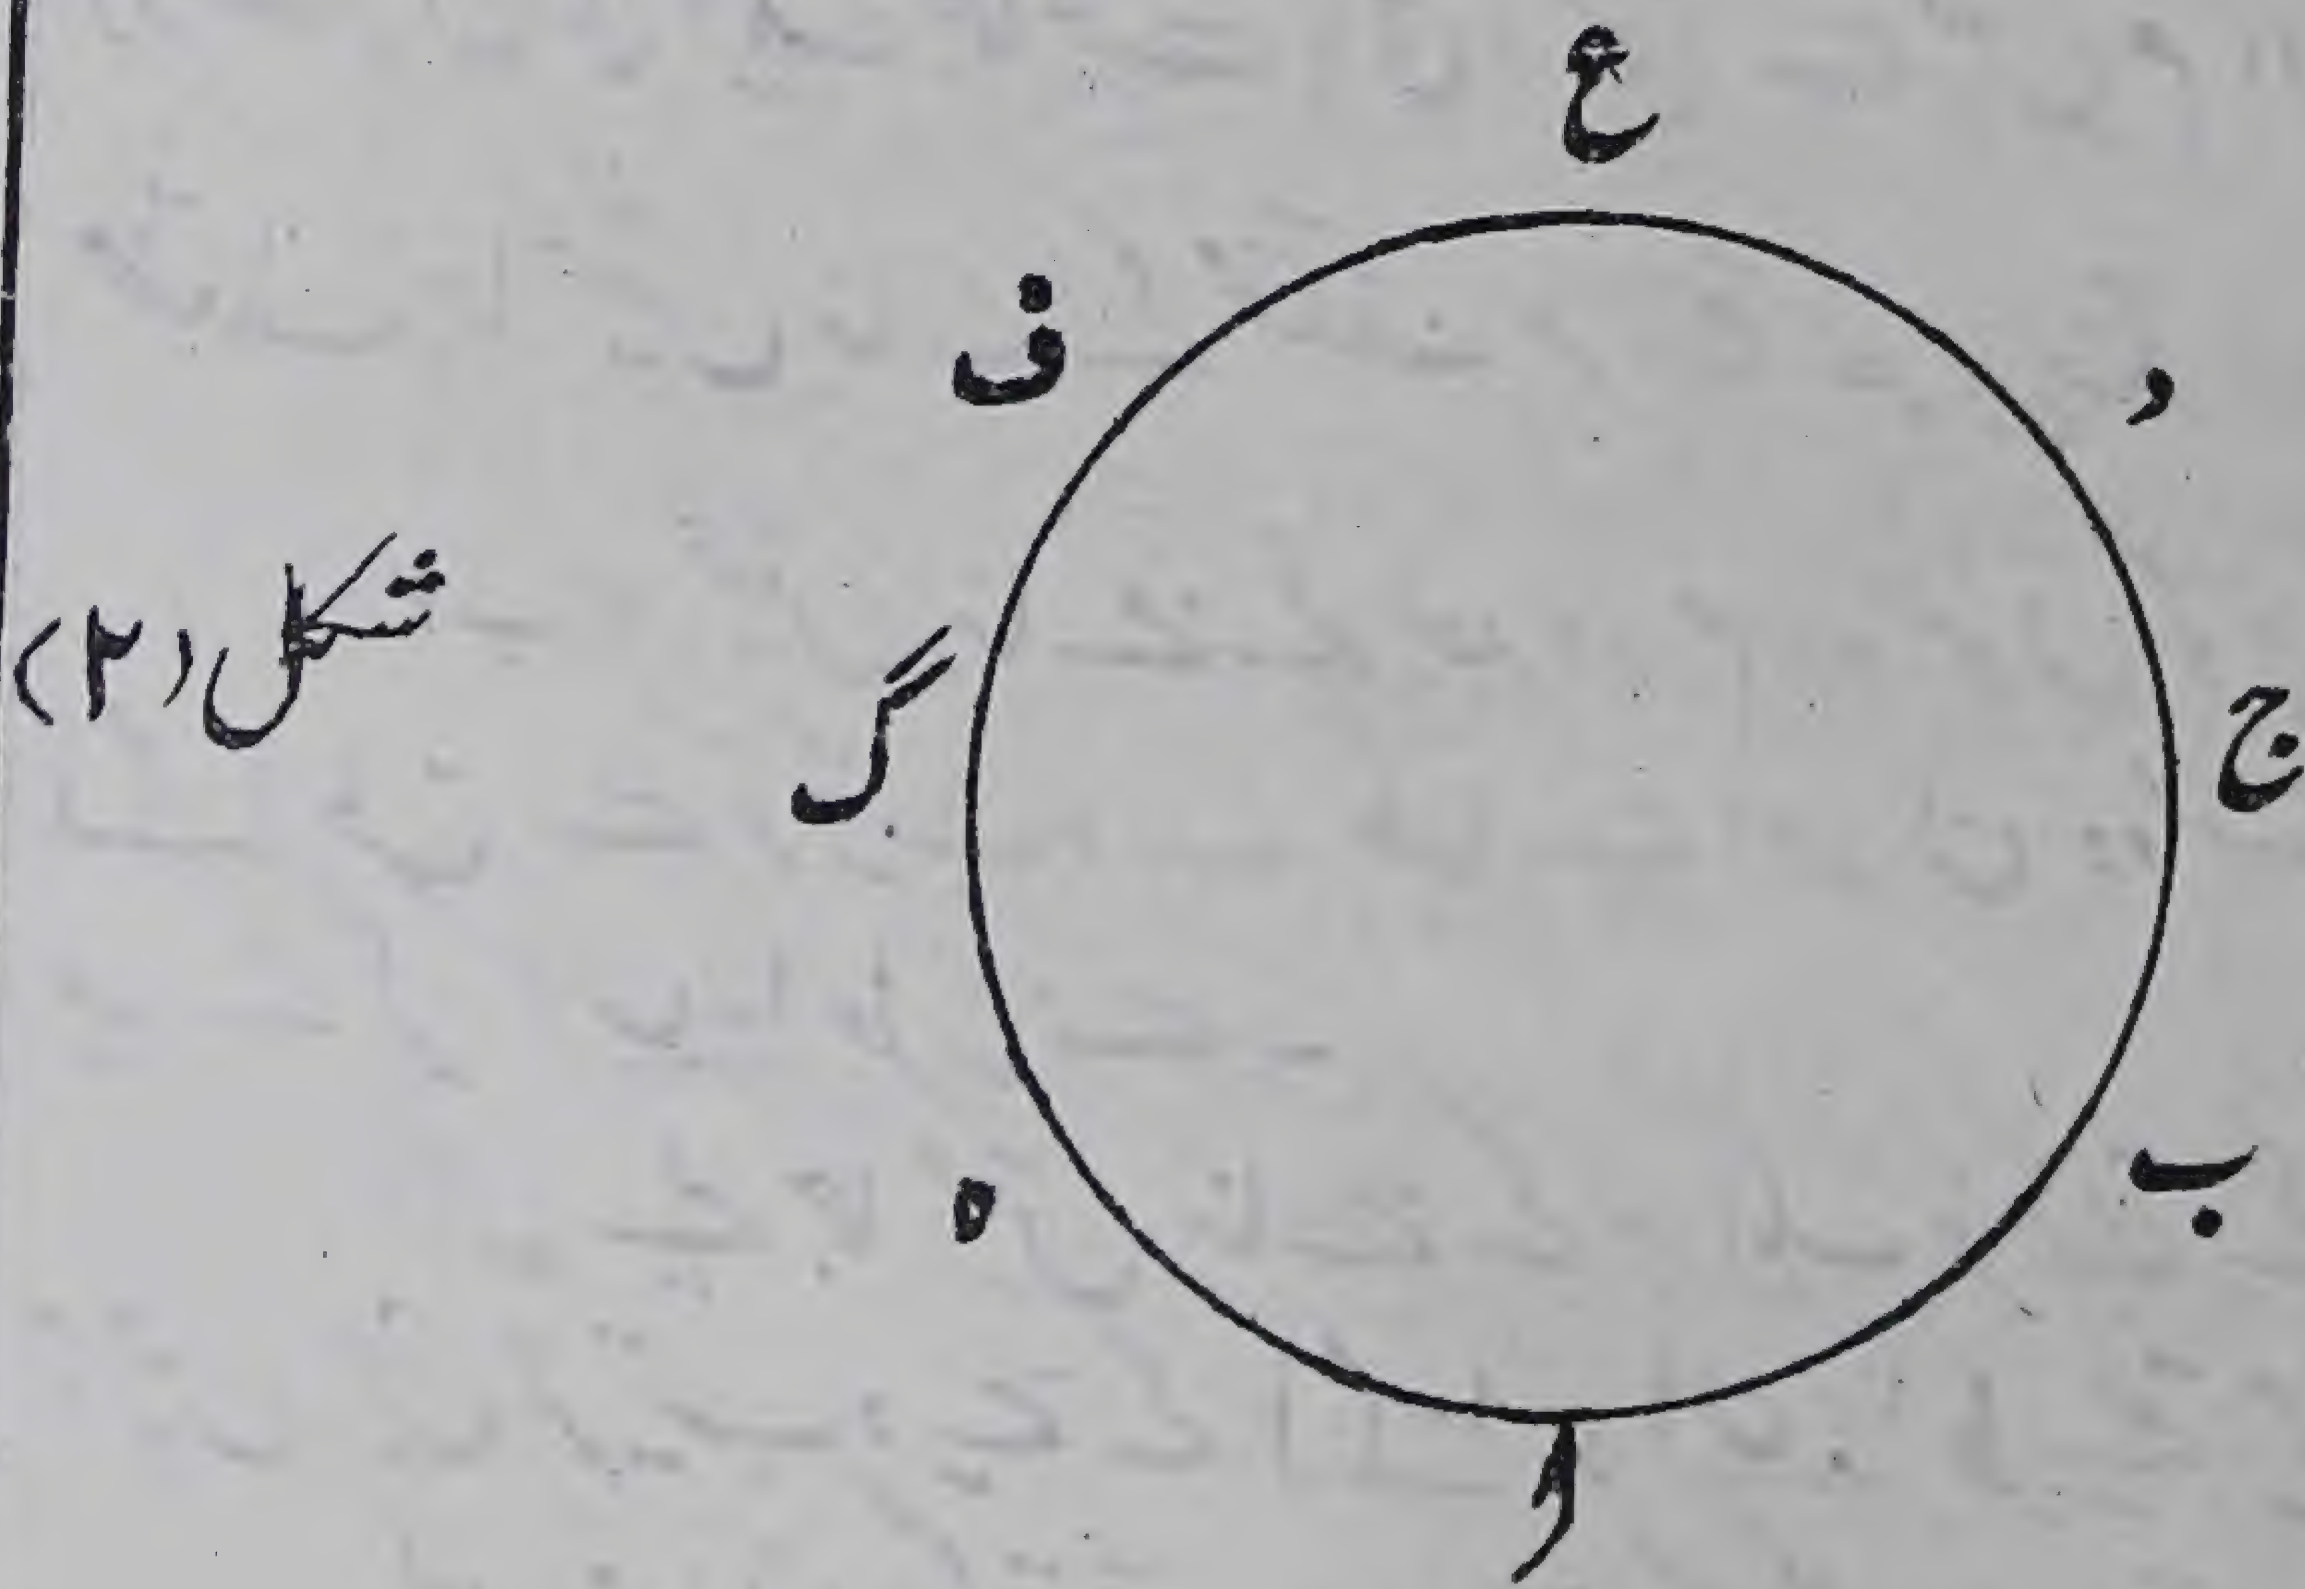 ع
ف
د
شکل (۲)
گ
ج
ہ
ب
ا